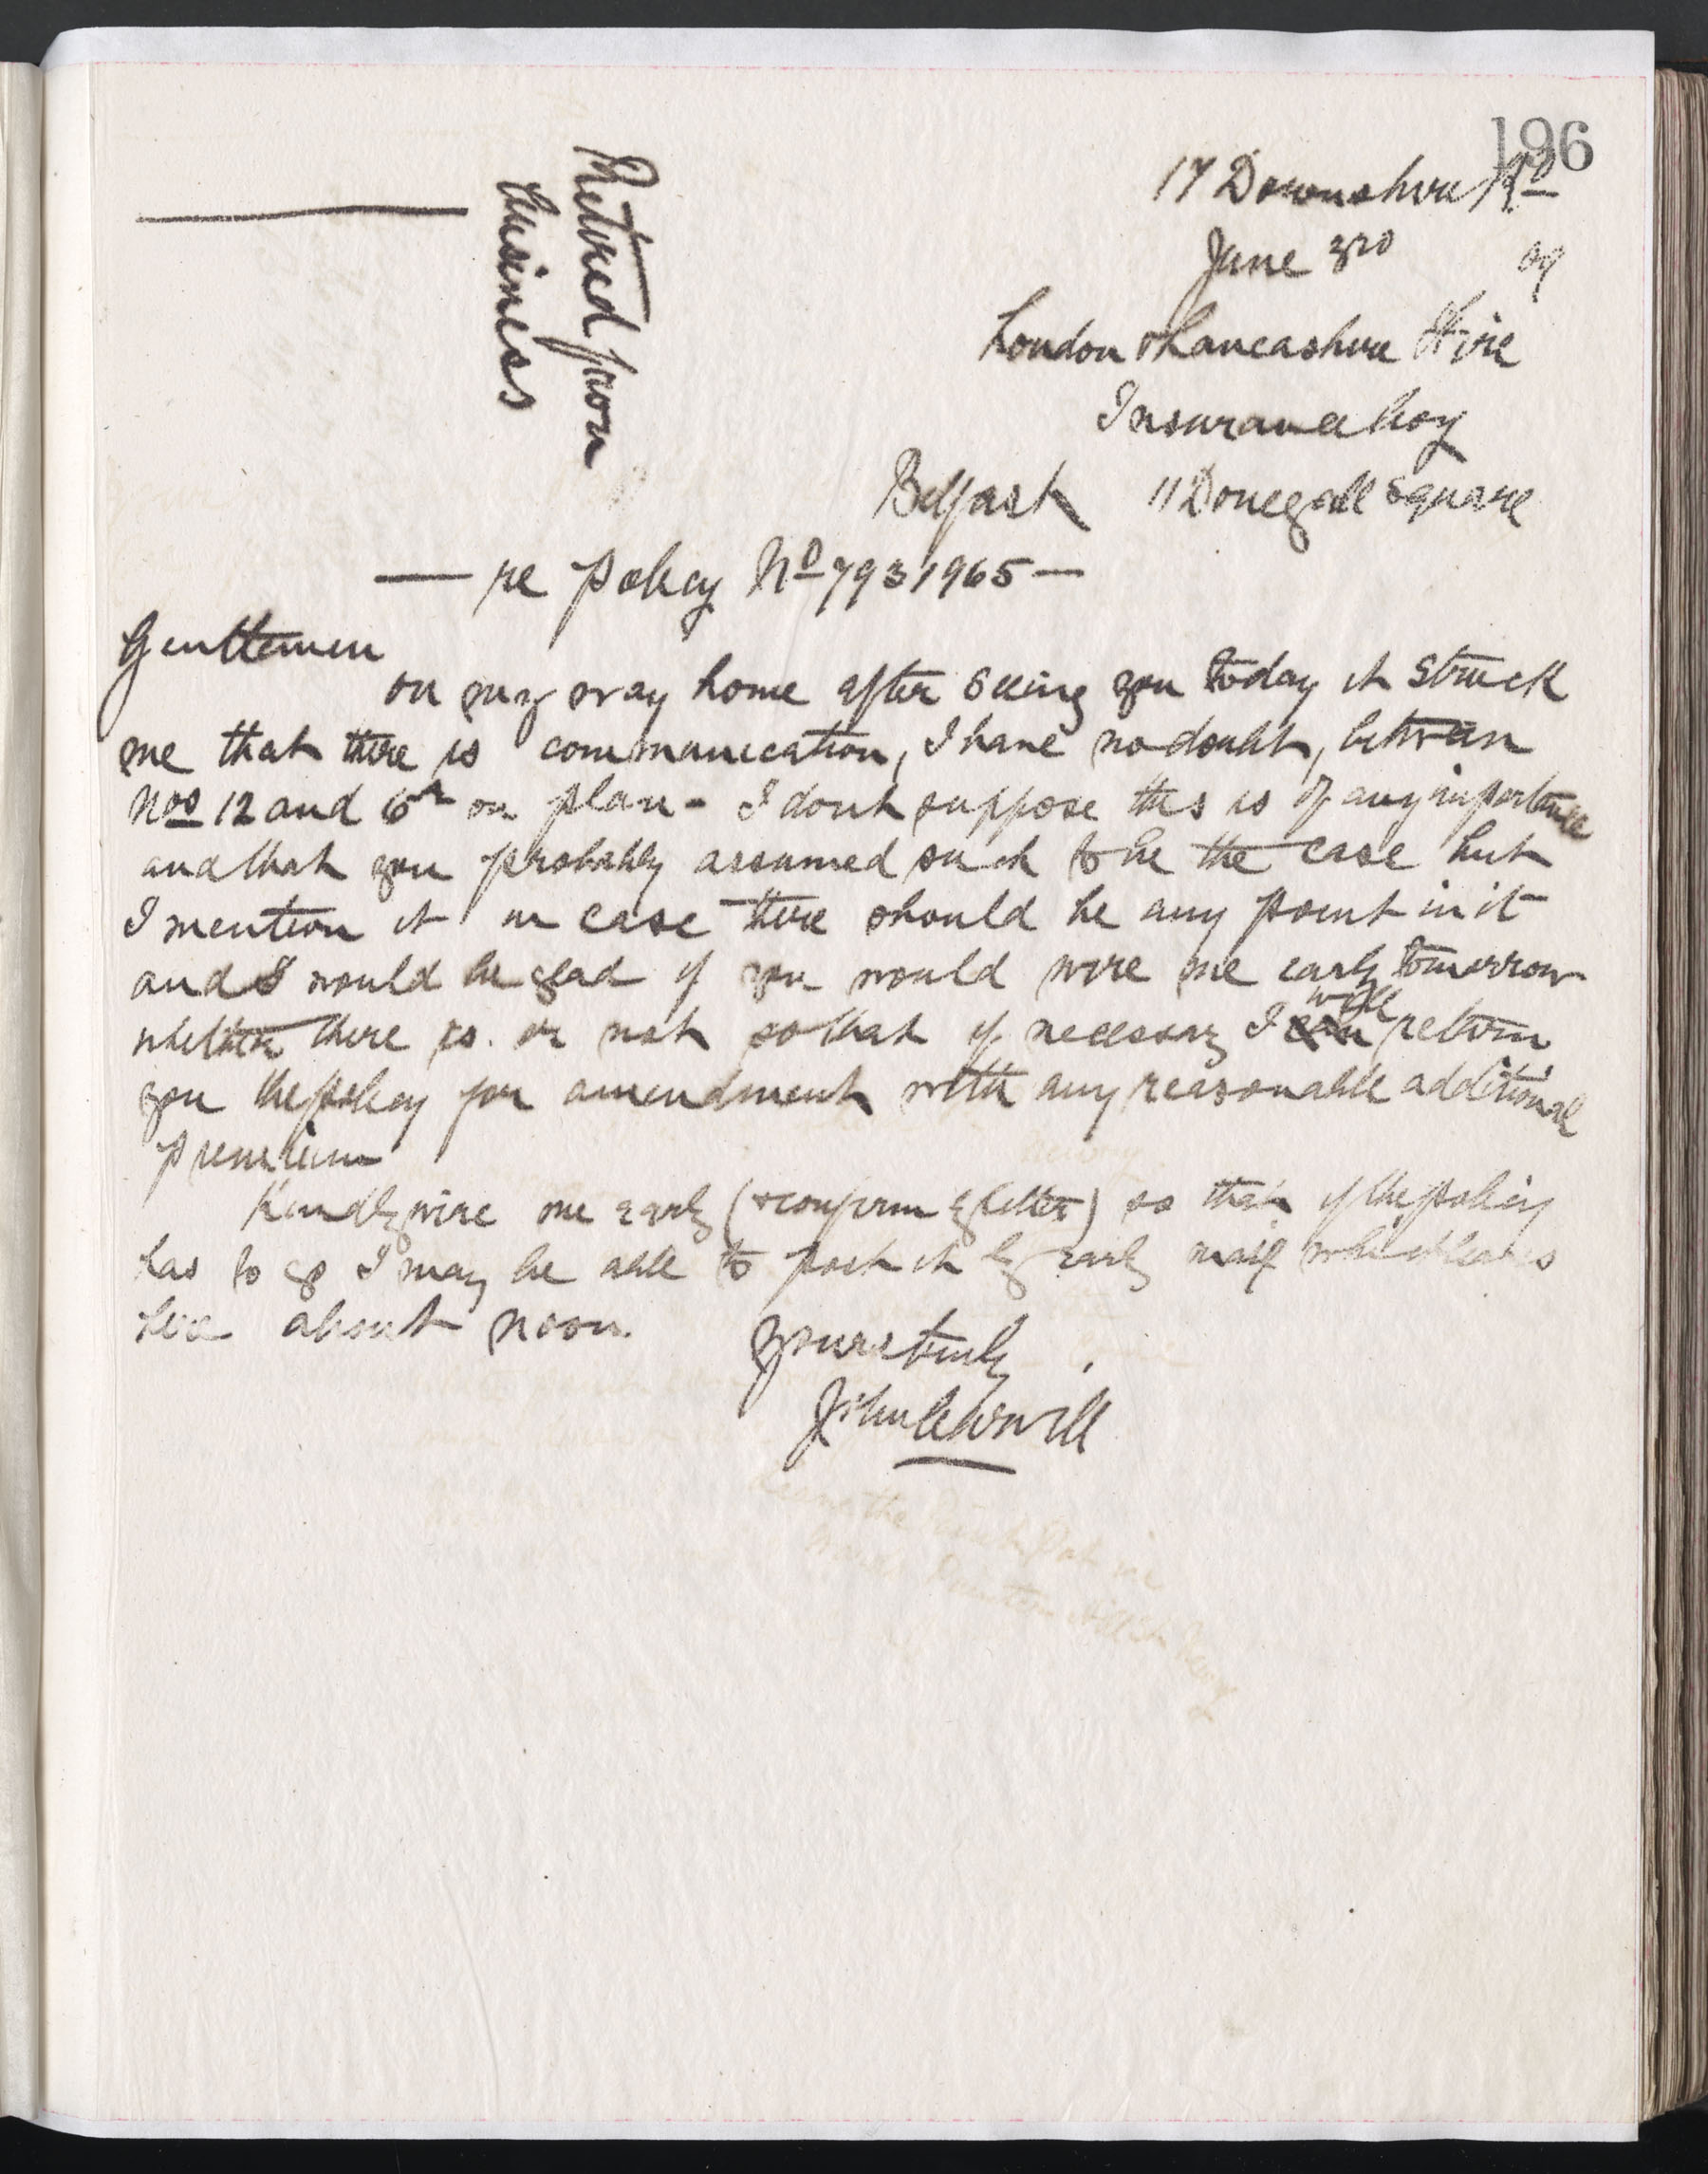 196
Retired from
business
17 Downshire Rd
June 3rd 09
London & Lancashire Fire
Insurance Coy
Belfast 11 Donegall Square
— re policy No 7931965 —
Gentlemen
on my way home after seeing you today it struck
me that there is communication, I have no doubt, between
Nos 12 and 6 on plan - I dont suppose this is of any importance
and that you probably assumed such to be the case but
I mention it in case there should be any point in it
and I would be glad if you would wire me early tomorrow
whether there is or not so that if necessary I can will return
you the policy for amendment with any reasonable additional
premium
Kindly wire me early (& confirm by letter) so that if the policy
has to go I may be able to post it by early mail which leaves
here about noon.
yours truly
John